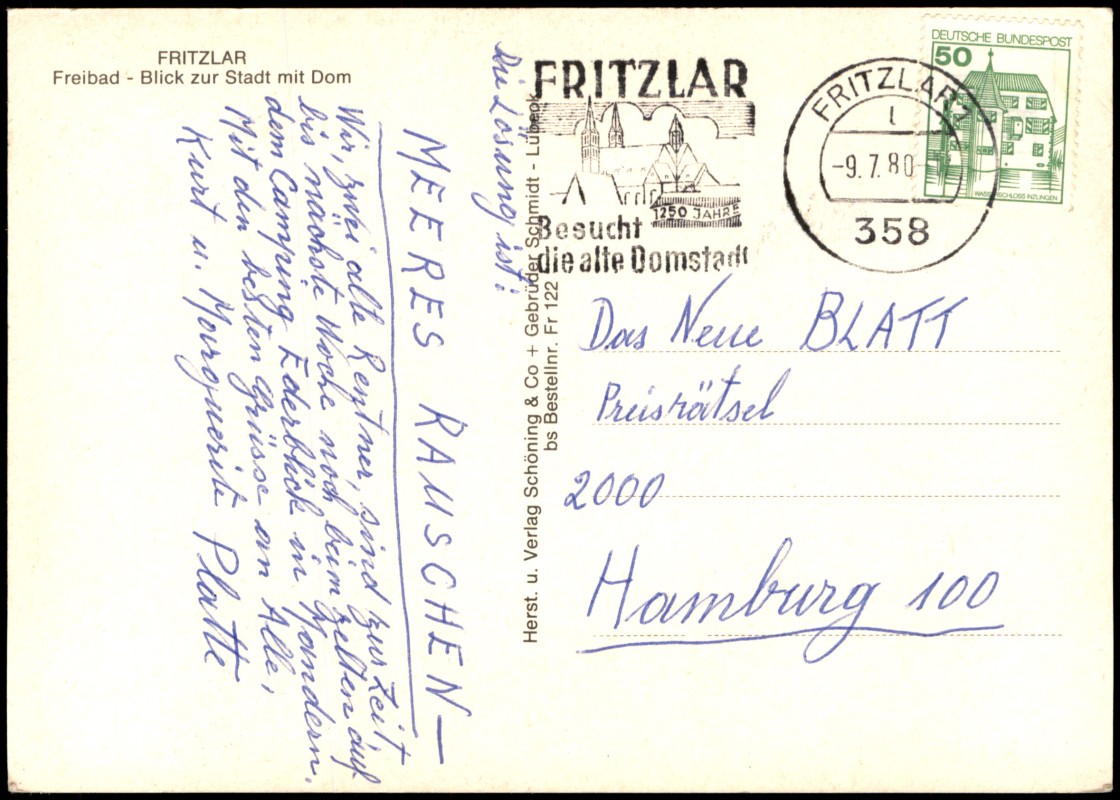 FRITZLAR
Freibad - Blick zur Stadt mit Dom
Die Lösung ist:
MEERES RAUSCHEN—
Wir, zwei alte Rentner, sind zur Zeit
bis nächste Woche noch beim zelten auf
dem Camping Ederblick in
Mit den besten Grüsse an Alle,
Kurt u. Marguerite Platte
Herst. u. Verlag Schöning & Co + Gebrüder Schmidt - Lübeck
bs Bestellnr. Fr 122
FRITZLAR
1250 JAHRE
Besucht
die alte Domstadt
FRITZLAR 1
-9.7.80-
358
DEUTSCHE BUNDESPOST
50
WASSERSCHLOSS INZLINGEN
Das Neue BLATT
Preisrätsel
2000
Hamburg 100